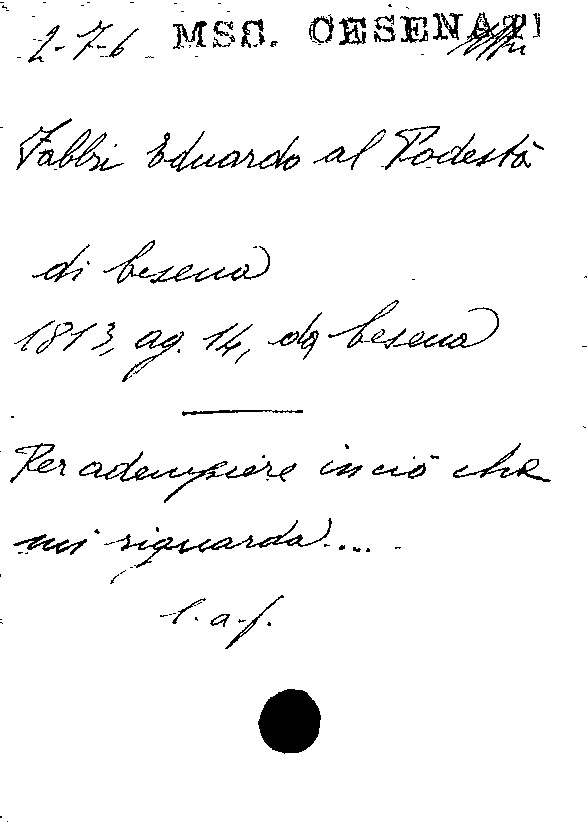 2-7-6 MSS. CESENATI
Fabbri Eduardo al Podestà
di Cesena
1813, ag. 14, da Cesena
Per adempiere in ciò che
mi riguarda....
l. a. f.